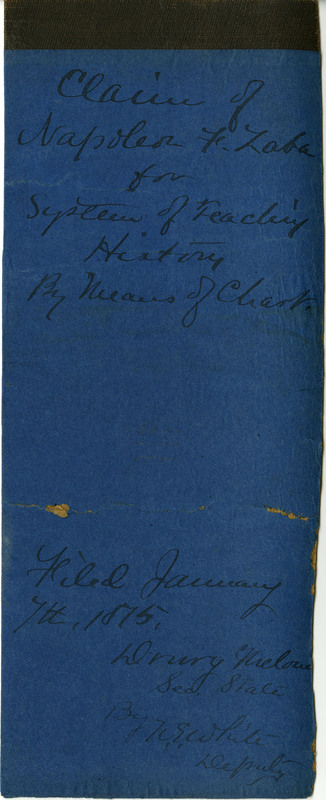 Claim of
Napoleon F. Zaba
for
System of Teaching
History
By Means of Chart.
Filed January
7th, 1875.
Drury Melone
Sec. State
By
White
Deputy